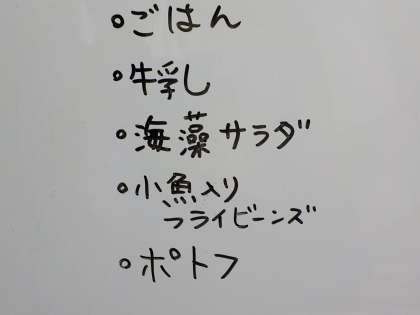 ・ごはん
・牛乳
・海藻サラダ
・小魚入り
フライビーンズ
・ポトフ